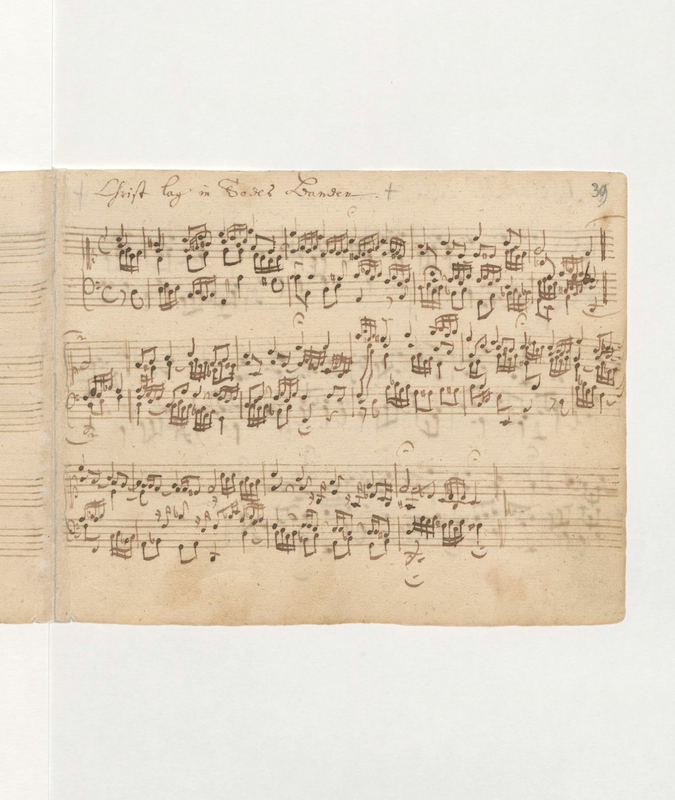 Christ lag in Todes Banden.
39